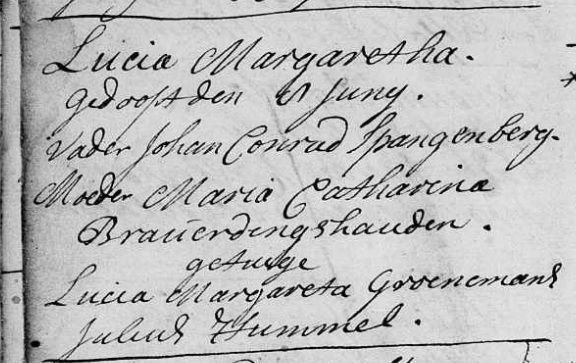 Lucia Margaretha.
gedoopt den Juny.
Vader Johan Conrad Spangenberg.
Moeder Maria Catharina
Brauerdingshauden.
getuige
Lucia Margareta Groenemans
Julius Hummel.